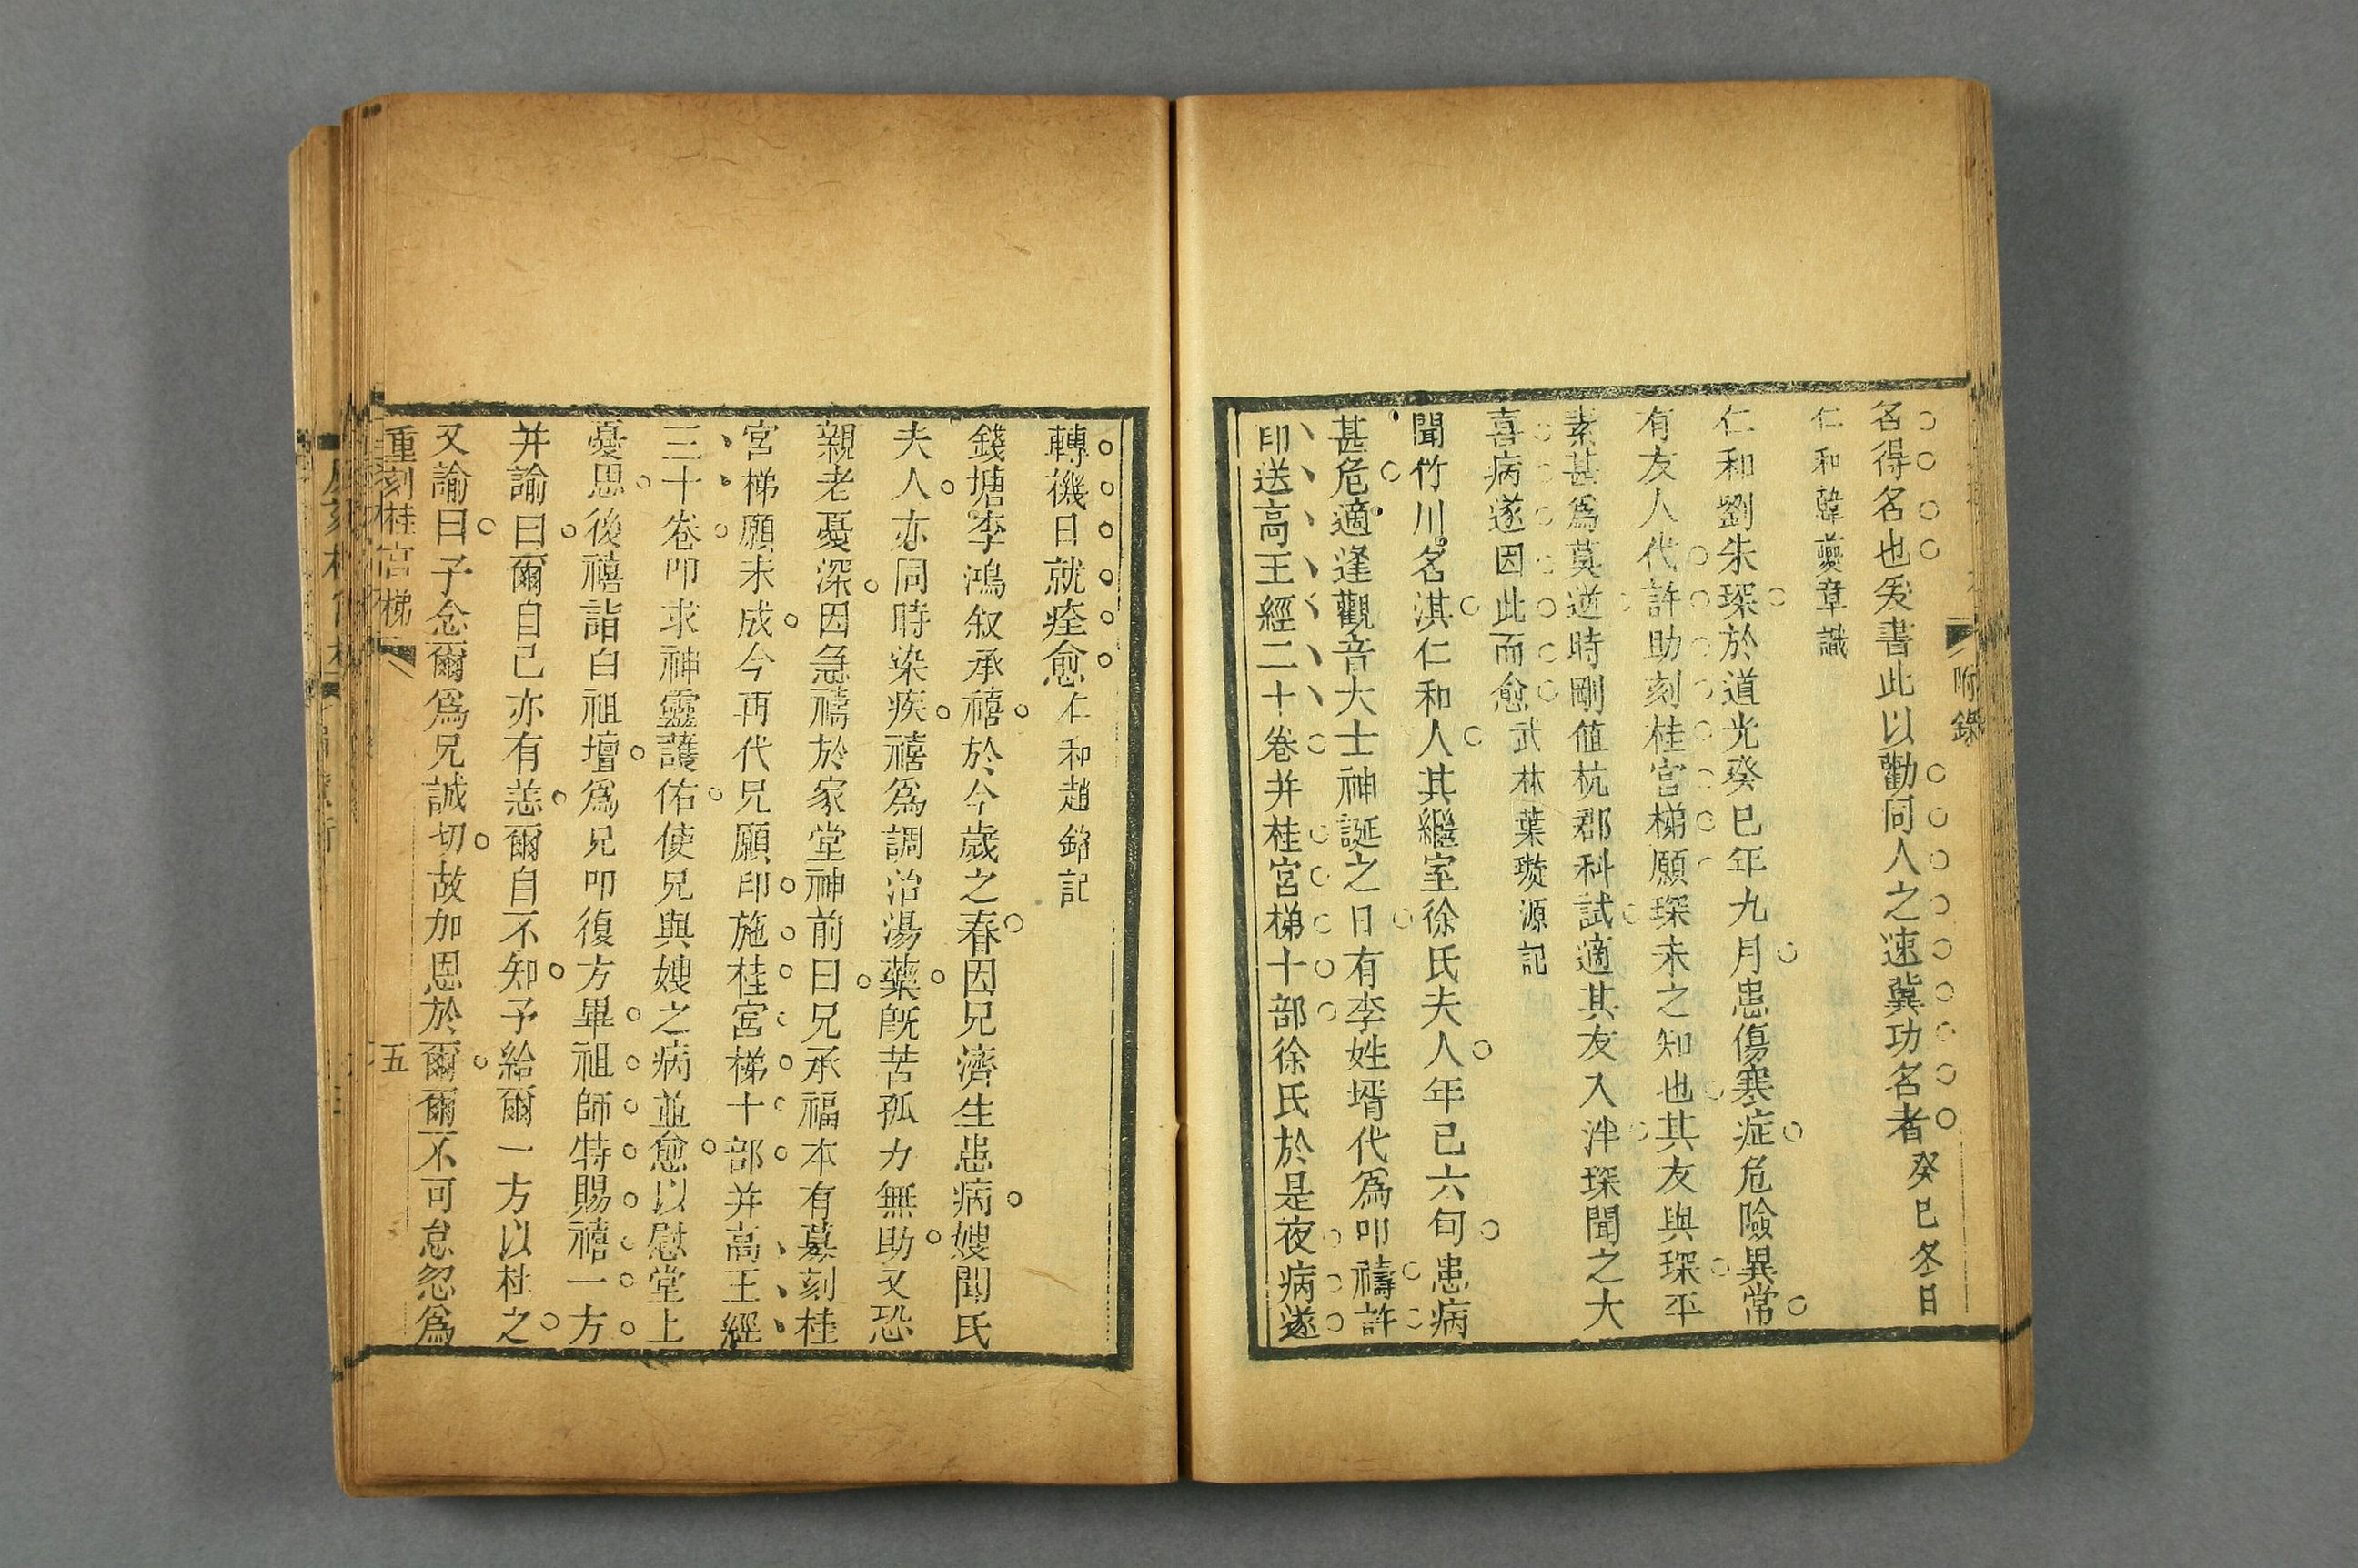 附錄
名得名也爰書此以勸同人之速冀功名者癸巳冬日
仁和韓䕫章識
仁和劉朱琛於道光癸巳年九月患傷寒症危險異常
有友人代許助刻桂宮梯願琛未之知也其友與琛平
素甚爲莫逆時剛值杭郡科試適其友入泮琛聞之大
喜病遂因此而愈武林葉璇源記
聞竹川名淇仁和人其繼室徐氏夫人年已六旬患病
甚危適逢觀音大士神誕之日有李姓壻代爲叩禱許
印送高王經二十卷并桂宮梯十部徐氏於是夜病遂
轉機日就痊愈仁和趙銘記
錢塘李鴻叙承禧於今歲之春因兄濟生患病嫂聞氏
夫人亦同時染疾禧爲調治湯藥旣苦孤力無助又恐
親老憂深因急禱於家堂神前曰兄承福本有募刻桂
宮梯願未成今再代兄願印施桂宮梯十部并高王經
三十卷叩求神靈護佑使兄與嫂之病並愈以慰堂上
憂思後禧詣白祖壇爲兄叩復方畢祖師特賜禧一方
并諭曰爾自己亦有恙爾自不知予給爾一方以杜之
又諭曰予念爾爲兄誠切故加恩於爾爾不可怠忽爲
重刻桂宮梯
五